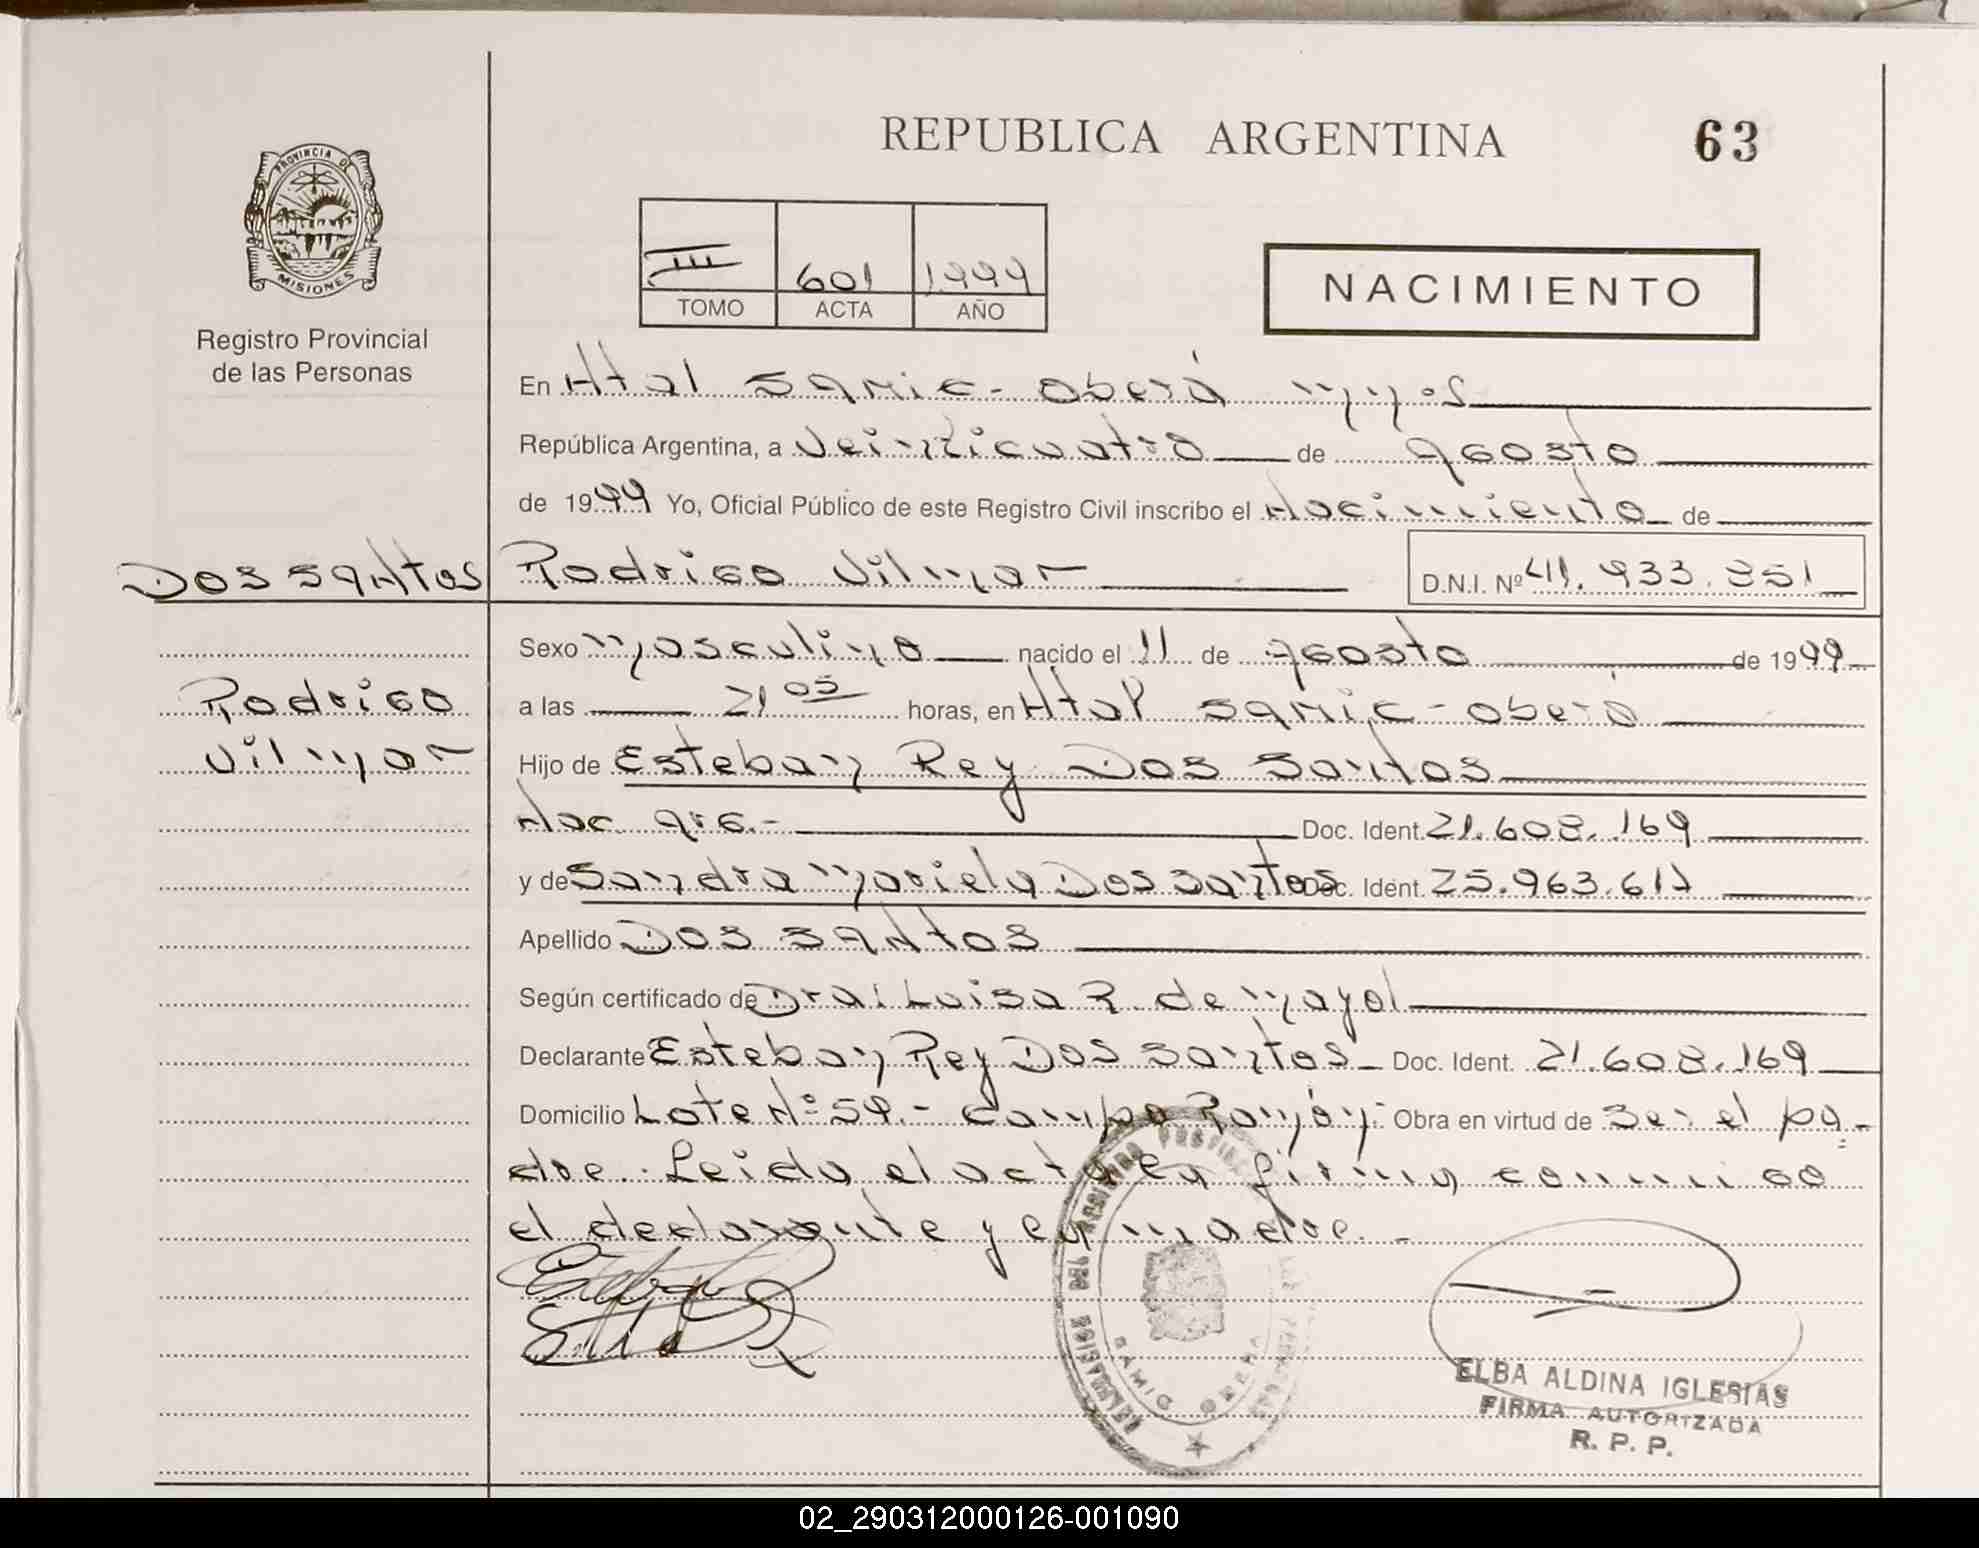 REPUBLICA ARGENTINA 63
PROVINCIA DE MISIONES
Registro Provincial
de las Personas
III 601 1999
TOMO ACTA AÑO
NACIMIENTO
En Htal SAMIC - Oberá Mnes
República Argentina, a Veinticuatro de Agosto
de 1999 Yo, Oficial Público de este Registro Civil inscribo el Nacimiento de
DOS SANTOS Rodrigo Vilmar D.N.I. Nº 41.933.851
Sexo Masculino nacido el 11 de Agosto de 1999
Rodrigo
Vilmar
a las 21 05 horas, en Htal SAMIC - Oberá
Hijo de Esteban Rey Dos Santos
Nac. Arg.- Doc. Ident. 21.608.169
y de Sandra Mariela Dos Santos Doc. Ident. 25.963.617
Apellido DOS SANTOS
Según certificado de Dra: Luisa R. de Mayol
Declarante Esteban Rey Dos Santos - Doc. Ident. 21.608.169
Domicilio Lote Nº 59.- Campo Ramón. Obra en virtud de ser el pa-
dre. Leida el acta la firma conmigo
el declarante y la madre. -
SAMIC OBERA
ELBA ALDINA IGLESIAS
FIRMA AUTORIZADA
R. P. P.
02_290312000126-001090